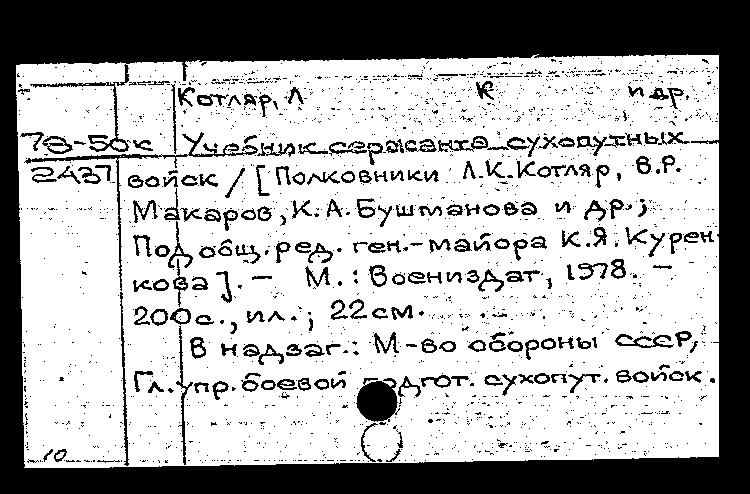 Котляр, Л К и др.
78-50к Учебник сержанта сухопутных
2437 войск / [Полковники Л.К.Котляр, В.Р.
Макаров, К.А.Бушманова и др.;
Под общ.ред. ген.-майора К.Я.Курен-
кова]. – М.: Воениздат, 1978. –
200с., ил.; 22см.
В надзаг.: М-во обороны СССР,
Гл.упр.боевой подгот. сухопут. войск.
10